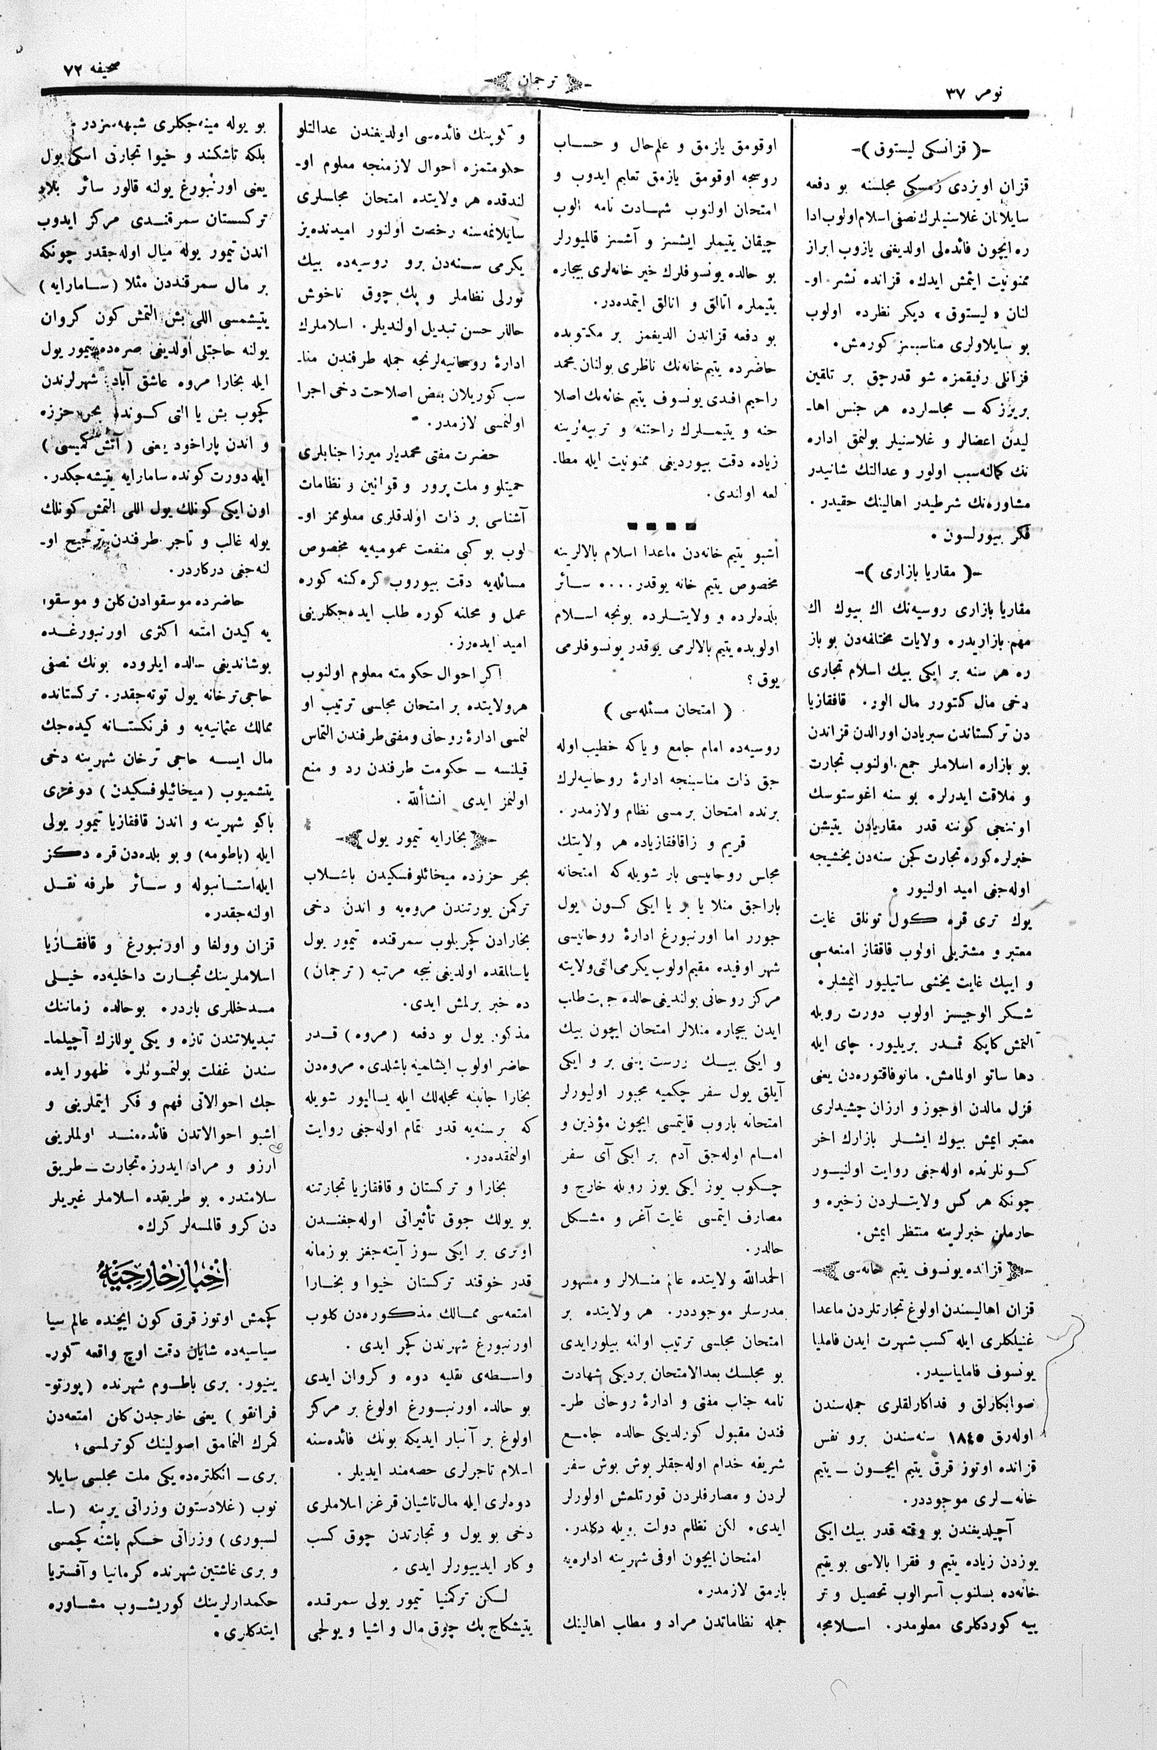 نومر ٣٧
ترجمان
صحیفه ٧٢
-( قزانسكی لیستوق )-
قزان اویزدی زمسكی مجلسنه بو دفعه
سایلانان غلاسنیلرك نصفی اسلام اولوب ادا
ره ایچون فائده‌لی اولدیغی یازوب ابراز
ممنونیت ایتمش ایدك. قزانده نشر او-
لنان «لیستوق» دیكر نظرده اولوب
بو سایلاولری مناسبسز كورمش.
قزانلی رفیقمزه شو قدرجق بر تلقین
بریرزكه — مجلسلرده هر جنس اها-
لیدن اعضالر و غلاسنیلر بولنمق اداره
نك كمالنه سبب اولور و عدالتك شانیدر
مشاوره‌نك شرطیدر اهالینك حقیدر.
فكر بیورلسون.
-( مقاریا بازاری )-
مقاریا بازاری روسیه‌نك اك بیوك اك
مهم بازاریدر. ولایات مختلفه‌دن بو باز
ره هر سنه بر ایكی بیك اسلام تجاری
دخی مال كتورر مال الور. قافقازیا
دن تركستاندن سبریادن اورالدن قزاندن
بو بازاره اسلاملر جمع اولنوب تجارت
و ملاقت ایدرلر. بو سنه اغوستوسك
اوننجی كوننه قدر مقاریادن یتیشن
خبرلره كوره تجارت كچن سنه‌دن یخشیجه
اوله‌جغی امید اولنیور.
یوك تری قره كول تونلق غایت
معتبر و مشتریلی اولوب قافقاز امتعه‌سی
و ایپك غایت یخشی ساتیلیور ایمشلر.
شكر الوجیسز اولوب دورت روبله
التمش كاپكه قدر بریلیور. چای ایله
دها ساتو اولمامش. مانوفاقتوره‌دن یعنی
قزل مالدن اوجوز و ارزان چشیدلری
معتبر ایمش بیوك ایشلر بازارك اخر
كونلرنده اوله‌جغی روایت اولنیور
چونكه هر كس ولایتلردن زخیره و
حارملن خبرلرینه منتظر ایمش.
قزانده یونسوف یتیم خانه‌سی
قزان اهالیسندن اولوغ تجارتلردن ماعدا
غنیلكلری ایله كسب شهرت ایدن فامیلیا
یونسوف فامیلیاسیدر.
صوابكارلق و فداكارلقلری جمله‌سندن
اوله‌رق ١٨٤٥ سنه‌سندن برو نفس
قزانده اوتوز قرق یتیم ایچون — یتیم
خانه‌لری موجوددر.
آچیلدیغندن بو وقته قدر بیك ایكی
یوزدن زیاده یتیم و فقرا بالاسی بو یتیم
خانه‌ده بسلنوب آسرالوب تحصیل و تر
بیه كوردكلری معلومدر. اسلامجه
اوقومق یازمق و علم حال و حساب
روسجه اوقومق یازمق تعلیم ایدوب و
امتحان اولنوب شهادت نامه الوب
چیقان یتیملر ایشسز و آشسز قالمیورلر
بو حالده یونسوفلرك خیر خانه‌لری بیچاره
یتیملره اتالق و انالق ایتمده‌در.
بو دفعه قزاندن الدیغمز بر مكتوبده
حاضرده یتیم‌خانه‌نك ناظری بولنان محمد
راحیم افندی یونسوف یتیم خانه‌نك اصلا
حنه و یتیملرك راحتنه و تربیه‌لرینه
زیاده دقت بیوردیغی ممنونیت ایله مطا-
لعه اولندی.
اشبو یتیم خانه‌دن ماعدا اسلام بالالرینه
مخصوص یتیم خانه یوقدر.... سائر
بلده‌لرده و ولایتلرده بونجه اسلام
اولوبده یتیم بالالرمی یوقدر یونسوفلرمی
یوق؟
( امتحان مسئله‌سی )
روسیه‌ده امام جامع و یاكه خطیب اوله
جق ذات مناسبنجه ادارۀ روحانیه‌لرك
برنده امتحان برمسی نظام ولازمدر.
قریم و زاقافقازیاده هر ولایتك
مجلس روحانیسی بار شویله كه امتحانه
باراجق منلا یا بر یا ایكی كون یول
جورر اما اورنبورغ ادارۀ روحانیسی
شهر اوفیده مقیم اولوب یكرمی التی ولایته
مركز روحانی بولندیغی حالده جهت طلب
ایدن بیچاره منلالر امتحان ایچون بیك
و ایكی بیك ویرست یعنی بر و ایكی
آیلق یول سفر چكمیه مجبور اولیورلر
امتحانه باروب قایتمسی ایچون مؤذین و
امام اوله‌جق آدم بر ایكی آی سفر
چكوب یوز ایكی یوز روبله خارج و
مصارف ایتمسی غایت آغر و مشكل
حالدر.
الحمدالله ولایتده عالم منلالر و مشهور
مدرسلر موجوددر. هر ولایتده بر
امتحان مجلسی ترتیب اوالنه بیلورایدی
بو مجلسك بعدالامتحان بردیكی شهادت
نامه جناب مفتی و ادارۀ روحانی طر-
فندن مقبول كورلدیكی حالده جامع
شریفه خدام اوله‌جقلر بوش بوش سفر
لردن و مصارفلردن قورتلمش اولورلر
ایدی. لكن نظام دولت بویله دكلدر.
امتحان ایچون اوفی شهرینه اداره‌یه
بارمق لازمدر.
جمله نظاماتدن مراد و مطلب اهالینك
و كوینك فائده‌سی اولدیغندن عدالتلو
حكومتمزه احوال لازمنجه معلوم او-
لندقده هر ولایتده امتحان مجلسلری
سایلانمه‌سنه رخصت اولنور امیدنده‌یز
یكرمی سنه‌دن برو روسیه‌ده بیك
تورلی نظاملر و پك چوق ناخوش
حاللر حسن تبدیل اولندیلر. اسلاملرك
ادارۀ روحانیه‌لرنجه جمله طرفندن منا-
سب كوریلان بعض اصلاحت دخی اجرا
اولنمسی لازمدر.
حضرت مفتی محمدیار میرزا جنابلری
حمیتلو و ملت پرور و قوانین و نظامات
آشناسی بر ذات اولدقلری معلوممز او-
لوب بو كبی منفعت عمومیه‌یه مخصوص
مسائله‌یه دقت بیوروب كره‌كنه كوره
عمل و محلنه كوره طلب ایده‌جكلرینی
امید ایده‌رز.
اكر احوال حكومته معلوم اولنوب
هرولایتده بر امتحان مجلسی ترتیب او
لنمسی ادارۀ روحانی و مفتی طرفندن التماس
قیلنسه — حكومت طرفندن رد و منع
اولنمز ایدی انشاألله.
بخارایه تیمور یول
بحر حزرده میخائلوفسكیدن باشلاب
تركمن یورتندن مروه‌یه و اندن دخی
بخارادن كچریلوب سمرقنده تیمور یول
یاسالقده اولدیغی نیجه مرتبه (ترجمان)
ده خبر برلمش ایدی.
مذكور یول بو دفعه (مروه) قدر
حاضر اولوب ایشلمیه باشلدی. مروه‌دن
بخارا جانبنه عجله‌لك ایله یسالیور شویله
كه بر سنه‌یه قدر تمام اوله‌جغی روایت
اولنمقده‌در.
بخارا و تركستان و قافقازیا تجارتنه
بو یولك چوق تأثیراتی اوله‌جغندن
اوتری بر ایكی سوز آیته‌جغز بو زمانه
قدر خوقند تركستان خیوا و بخارا
امتعه‌سی ممالك مذكوره‌دن كلوب
اورنبورغ شهرندن كچر ایدی.
واسطه‌ی نقلیه دوه و كروان ایدی
بو حالده اورنبورغ اولوغ بر مركز
اولوغ بر آنبار ایدیكه بونك فائده‌سنه
اسلام تاجرلری حصه‌مند ایدیلر.
دوه‌لری ایله مال تاشیان قرغز اسلاملری
دخی بو یول و تجارتدن چوق كسب
و كار ایدییورلر ایدی.
لكن تركمنیا تیمور یولی سمرقنده
یتیشكاچ پك چوق مال و اشیا و یولجی
بو یوله مینه‌جكلری شبهه‌سزدر.
بلكه تاشكند و خیوا تجارتی اسكی یول
یعنی اورنبورغ یولنه قالور سائر بلاد
تركستان سمرقندی مركز ایدوب
اندن تیمور یوله میال اوله‌جقدر چونكه
بر مال سمرقنددن مثلا (سامارایه)
یتیشمسی اللی بش التمش كون كروان
یولنه حاجتلی اولدیغی صره‌ده تیمور یول
ایله بخارا مروه عاشق آباد شهرلرندن
كچوب بش یا التی كونده بحر حزره
و اندن پاراخود یعنی (آتش كمیسی)
ایله دورت كونده سامارایه یتیشه‌جكدر.
اون ایكی كونلك یول اللی التمش كونلك
یوله غالب و تاجر طرفندن ترجیح او-
لنه‌جغی دركاردر.
حاضرده موسقوادن كلن و موسقوا
یه كیدن امتعه اكثری اورنبورغده
بوشاندیغی حالده ایلروده بونك نصفی
حاجی ترخانه یول توته‌جقدر. تركستانده
ممالك عثمانیه‌یه و فرنكستانه كیده‌جك
مال ایسه حاجی ترخان شهرینه دخی
یتشمیوب (میخائیلوفسكیدن) دوغری
باكو شهرینه و اندن قافقازیا تیمور یولی
ایله (باطومه) و بو بلده‌دن قره دكز
ایله استانبوله و سائر طرفه نقل
اولنه‌جقدر.
قزان وولغا و اورنبورغ و قافقازیا
اسلاملرینك تجارت داخلیه‌ده خیلی
مدخللری باردر. بوحالده زماننك
تبدیلاتندن تازه و یكی یوللرك آچیلما-
سندن غفلت بولنمسونلر. ظهور ایده
جك احوالاتی فهم و فكر ایتملرینی و
اشبو احوالاتدن فائده‌مند اولملرینی
ارزو و مراد ایدرز. تجارت — طریق
سلامتدر. بو طریقده اسلاملر غیریلر
دن كرو قالمسه‌لر كرك.
اخبار خارجیه
كچمش اوتوز قرق كون ایچنده عالم سیا
سیاسیه‌ده شایان دقت اوچ واقعه كور-
ینیور. بری باطوم شهرنده (پورتو-
فرانقو) یعنی خارجدن كلن امتعه‌دن
كمرك النمامق اصولینك كوترلمسی؛
بری — انكلتره‌ده یكی ملت مجلسی سایلا
نوب (غلادستون وزراتی یرینه (سا-
لسبوری) وزراتی حكم باشنه كچمسی
و بری غاشتین شهرنده كرمانیا و آفستریا
حكمدارلرینك كوریشوب مشاوره
ایتدكلری.